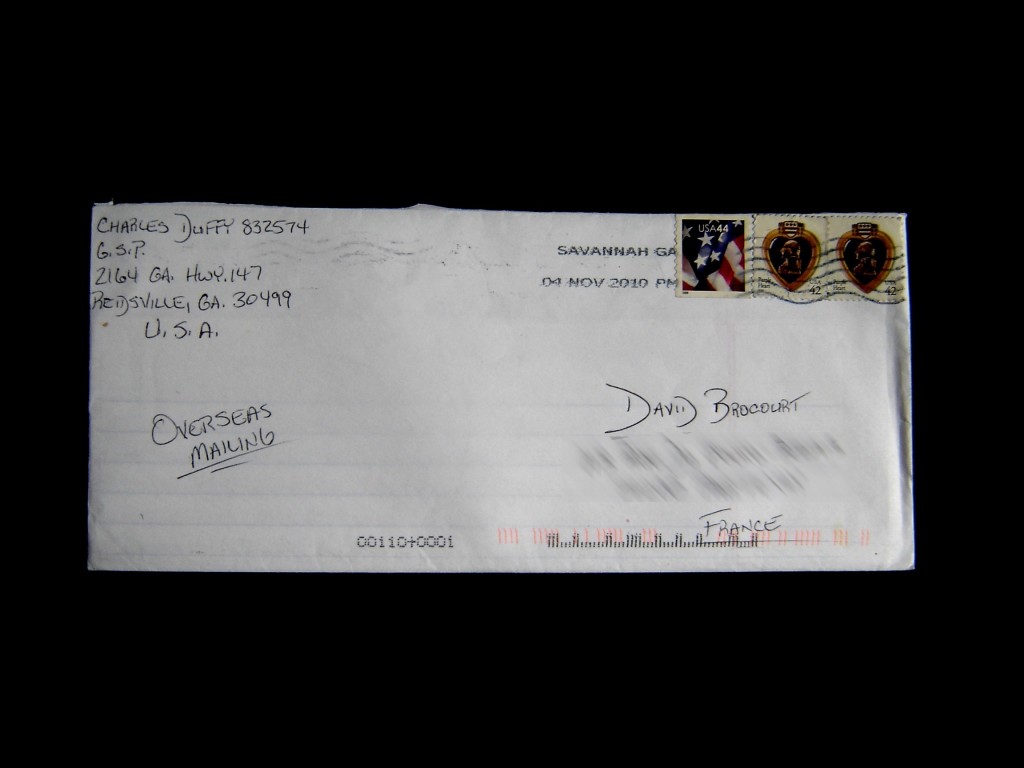 CHARLES DUFFY 832574
G.S.P.
2164 GA. HWY.147
REIDSVILLE, GA. 30499
U.S.A.
SAVANNAH GA
04 NOV 2010 PM
USA 44
Purple Heart
USA 42
Purple Heart
USA 42
OVERSEAS
MAILING
DAVID BROCOURT
FRANCE
00110+0001